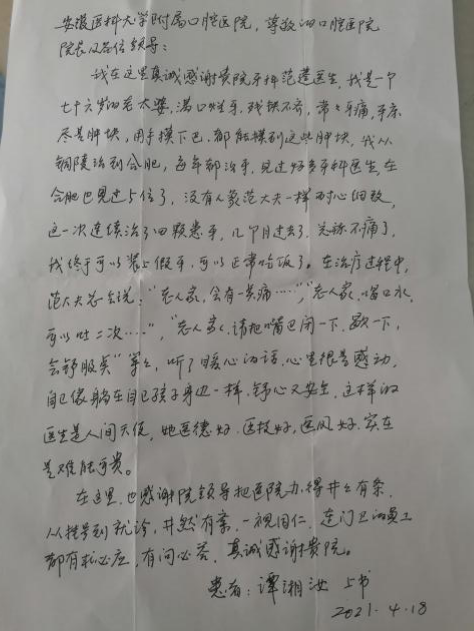 安徽医科大学附属口腔医院，尊敬的口腔医院
院长及各位领导：
我在这里真诚感谢贵院牙科范蕴医生，我是一个
七十六岁的老太婆，满口烂牙，残缺不齐，常常牙痛，牙床
尽是肿块，用手摸下巴，都能摸到这些肿块，我从
铜陵治到合肥，每年都治牙，见过好多牙科医生在
合肥也见过5位了，没有人象范大夫一样耐心细致，
这一次连续治了四颗患牙，几个月过去了，关键不痛了，
我终于可以装上假牙，可以正常吃饭了。在治疗过程中，
范大夫总会说："老人家，会有一点痛……"，"老人家，嘴口水，
可以吐二次……"，"老人家，请把嘴巴闭一下，歇一下，
会舒服点"等等，听了暖心的话，心里很是感动，
自己像躺在自己孩子身边一样，舒心又安全，这样的
医生是人间天使，她医德好，医技好，医风好，实在
是难能可贵。
在这里，也感谢院领导把医院办得井井有条，
从挂号到就诊，井然有条，一视同仁，连门卫的员工
都有求必应，有问必答，真诚感谢贵院。
患者：谭湘汝 上书
2021.4.18